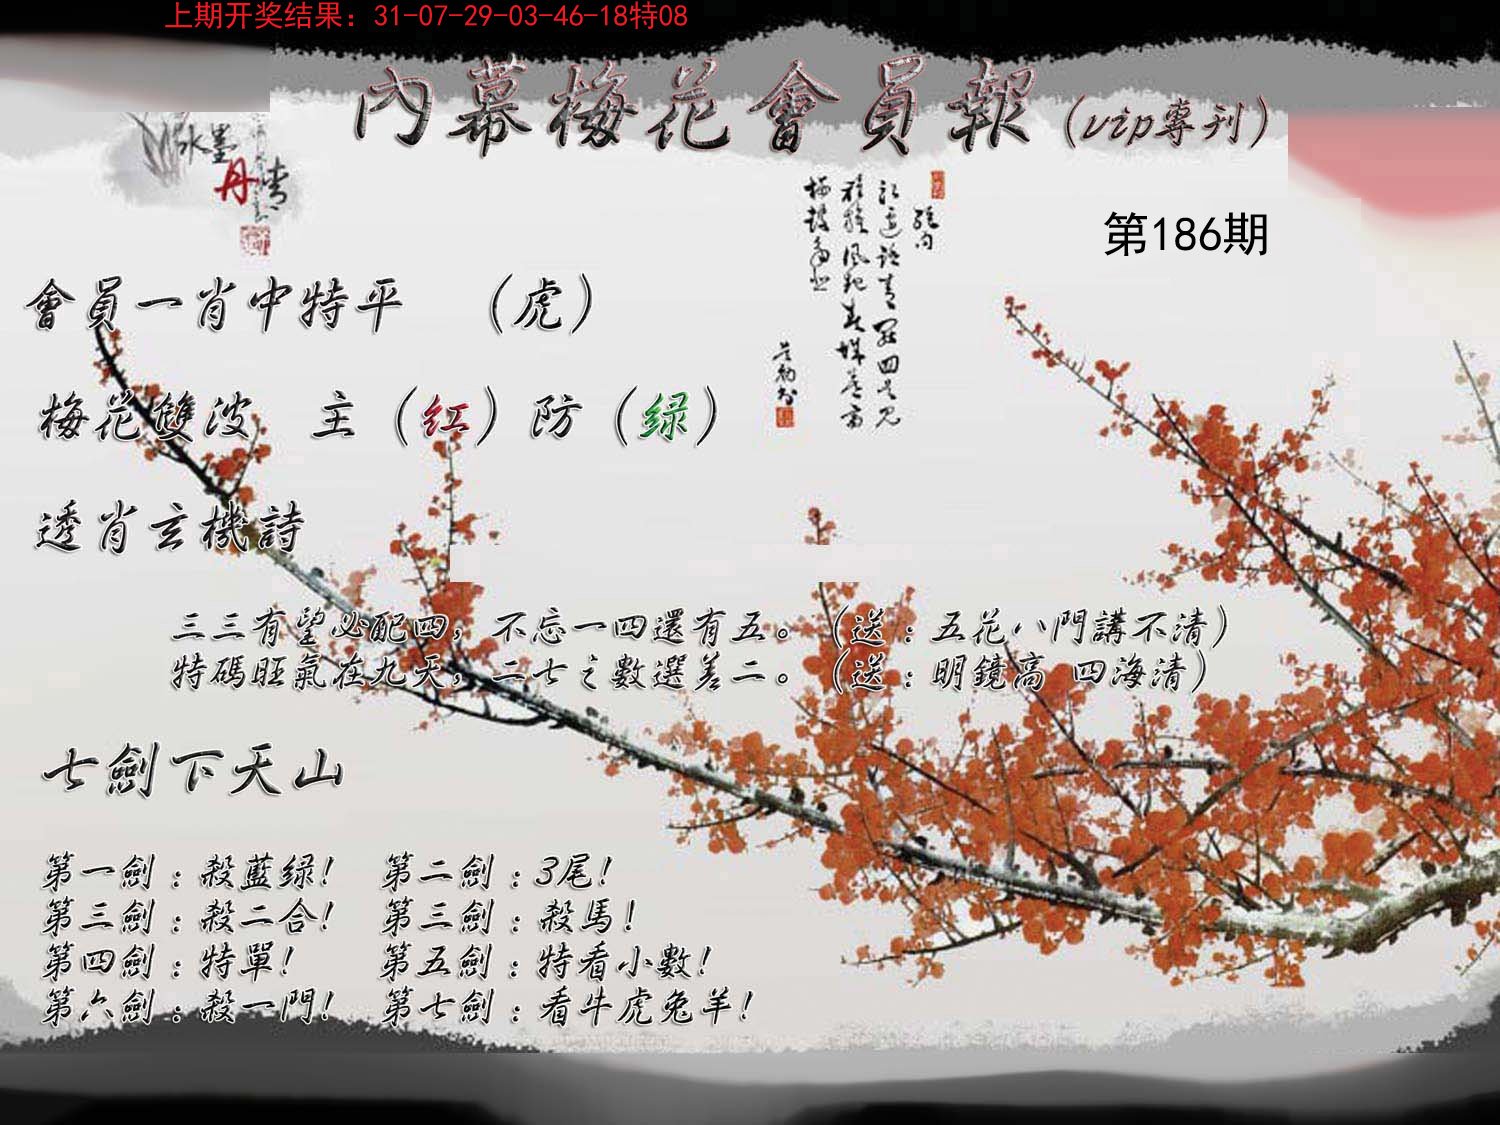 上期开奖结果：31-07-29-03-46-18特08
內幕梅花會員報(vip專刊)
水墨
丹
第186期
會員一肖中特平 （虎）
梅花雙波 主（红）防（绿）
透肖玄機詩
三三有望必配四，不忘一四還有五。（送：五花八門講不清）
特碼旺氣在九天，二七之數選差二。（送：明鏡高 四海清）
七劍下天山
第一劍：殺藍绿！ 第二劍：3尾！
第三劍：殺二合！ 第三劍：殺馬！
第四劍：特單！ 第五劍：特看小數！
第六劍：殺一門！ 第七劍：看牛虎兔羊！